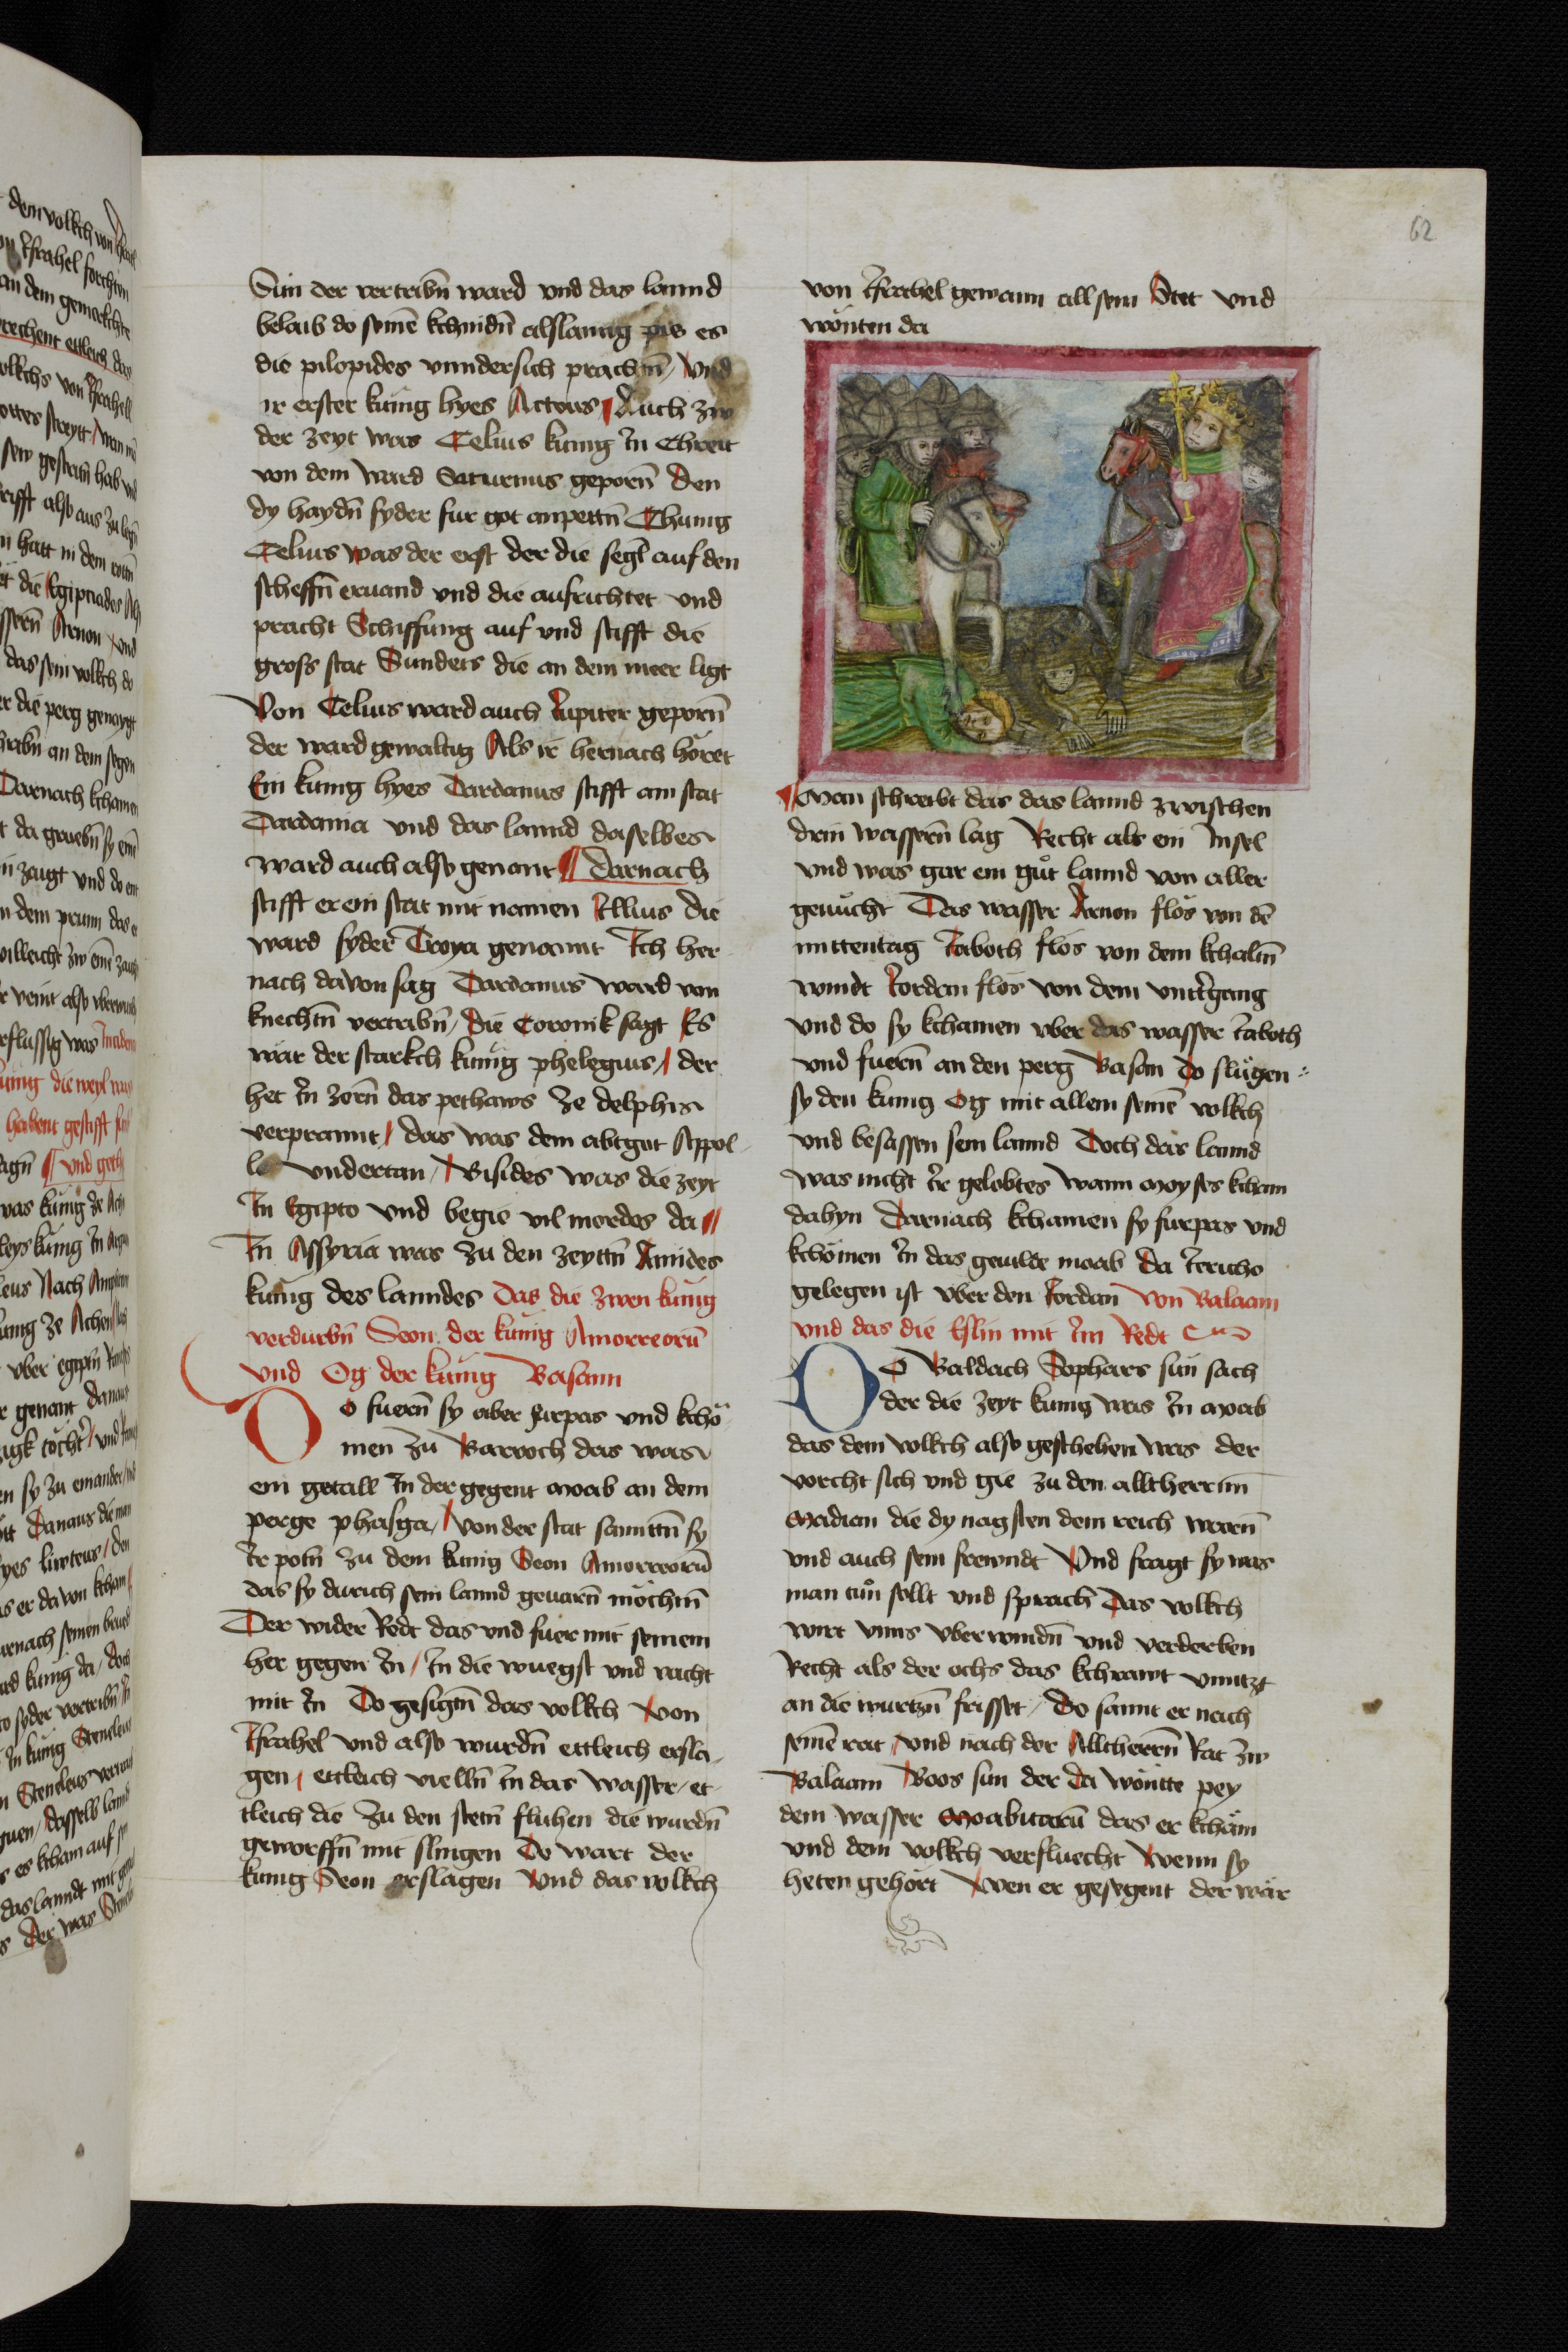 62
Sun der vertribn̄ ward vnd das lannd
belaib do seinē kchindn̄ alslanng pis es
die pilopides vnndersich prachtn̄ / Vnd
ir erster kunig hyes Actous ¶ Auch zw
der zeyt was Celius kunig In Chreit
von dem ward Saturnus geporn̄ Den
dy haydn̄ syder fur got anpettn̄ Chunig
Celius was der erst der die segl auf den
scheffn̄ ervand vnd die aufrichtet vnd
pracht Schiffung auf vnd stifft die
gross stat Sunders die an dem meer ligt
Von Celius ward auch Jupiter geporn̄
der ward gewaltig Als ir hernach höret
Ein kunig hyes Dardanus stifft ain stat
Dardania vnd das lannd daselbes
ward auch also genant ¶ Darnach
stifft er ein stat mit namen Illius die
ward syder Troya genannt Ich her
nach davon sag Dardanus ward von
knechtn̄ vertribn̄ / Die Coronik sagt Es
wär der starkch kunig phelegius / der
het In zorn̄ das pethaws ze delphis
verprannt / das was dem abtgut Appol-
lo vndertan / Bisides was die zeyt
In Egipto vnd begie vil mordes da ¶
In Assyria was zu den zeyttn̄ Amides
kunig des lanndes Das die zwen kunig
verdurbn̄ Seon der kunig Amorreorū
vnd Og der kunig Basann
Do fuern̄ sy aber furpas vnd kchö
men zu Barroch das was
ein getall In der gegent moab an dem
perge phasga / Von der stat sanntn̄ sy
Ir potn̄ zu dem kunig Seon Amorreorū
das sy durich sein lannd gevarn̄ möchtn̄
Der wider Redt das vnd fuer mit seinem
her gegen In / In die wuegst vnd vacht
mit In Do gesigtn̄ das volkch von
Israhel vnd also wurdn̄ ettleich ersla-
gen / ettleich vielln̄ In das wasser / et
tleich die zu den stetn̄ fluhen die wurdn̄
geworffn̄ mit slingen Do wart der
kunig Seon erslagen Vnd das volkch
von Israhel gewann all sein Stet vnd
wonten da
¶ Man schreibt das das lannd zwischen
drin wassern̄ lag Recht als ein Insel
vnd was gar ein gůt lannd von aller
genucht Das wasser Arnon flos von dē
mittentag Jaboth flos von dem kchaltn̄
windt Jordan flos von dem vntergang
vnd do sy kchamen vber das wasser Jaboth
vnd fuern̄ an den perg Basan Do slůgen
sy den kunig Og mit allem seinē volkch
vnd besassen sein lannd Doch das lannd
was nicht Ir gelobtes wann moyses kcham
dahyn Darnach kchamen sy furpas vnd
kchömen In das gevilde moab da Jericho
gelegen ist vber den Jordan von Balaam
vnd das die Eslin mit Im Redt
Do Baldach Sephers sun sach
der die zeyt kunig was In moab
das dem volkch also geschehen was der
vorcht sich vnd gie zu den alltherrnn
Madian die dy nagsten dem reich warn̄
vnd auch sein frewndt Vnd fragt sy was
man tun sollt vnd sprach Das volkch
wirt vnns vberwindn̄ vnd verderben
Recht als der ochs das kchrawt vnntzt
an die wurtzn̄ frisset / Do sannt er nach
seinē rat / vnd nach der Alltherrn̄ Rat zw
Balaam Boos sun der da wonte pey
dem wasser Moabitarū das er kchäm
vnd dem volkch verfluecht Wenn sy
heten gehört Wen er gesegent der wär